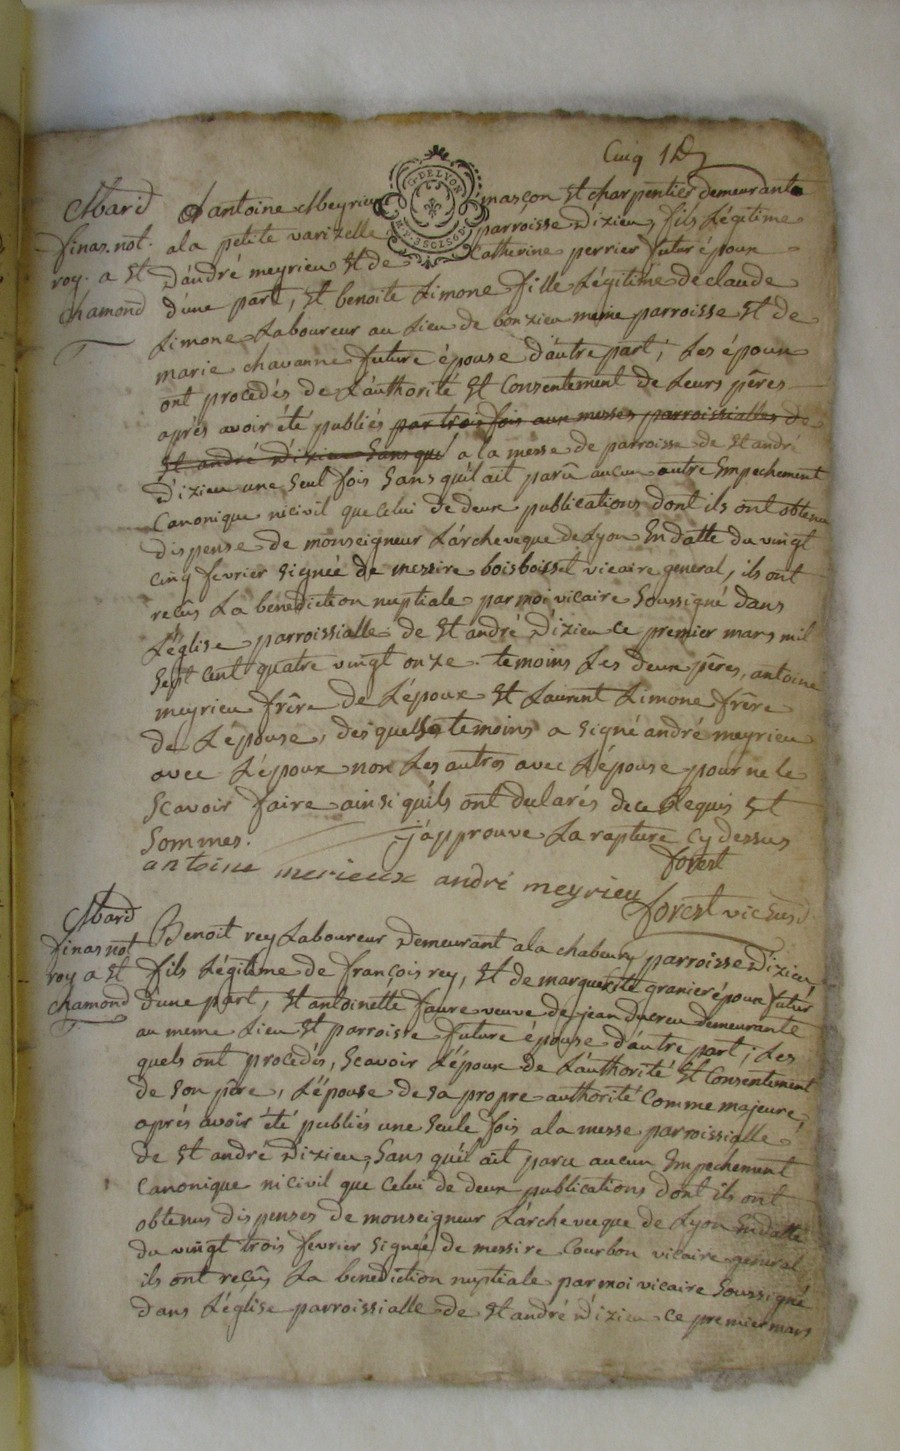 Cinq
G. DE LYON
Mard
finas. not.
roy. a St
chamond
antoine Meyrieu masçon St charpentier demeurant
ala petite varizelle parroisse D'izieu, fils Légitime
D'andré meyrieu St de Catherine perrier futur époux
d'une part, St benoite Limone fille Légitime de claude
Limone Laboureur au Lieu de bonzieu meme parroisse St de
marie chavanne future épouse D'autre part; Les époux
ont procedés de L'authorité St Consentement de Leurs pères
aprés avoir été publiés par trois fois aux messes parroissialles de
St andré D'izieu Sans que a la messe de parroisse de St andré
D'izieu une Seul fois Sans qu'il ait parû aucun autre Empechement
Canonique ni civil que Celui de deux publications dont ils ont obtenu
dispense de monseigneur L'archeveque de Lyon En datte du vingt
cinq fevrier signée de messire boisboissel vicaire general, ils ont
reçûs La bénédiction nuptiale par moi vicaire Soussigné dans
L'église parroissialle de St andré D'izieu ce premier mars mil
Sept cent quatre vingt onze. temoins Les deux pères, antoine
meyrieu frère de L'époux St Laurent Limone frère
de L'épouse, desquels temoins a signé andré meyrieu
avec L'époux non Les autres avec L'épouse pour ne le
Scavoir faire ainsi qu'ils ont declarés de ce Requis St
Sommes. j'approuve La rapture cy dessus
forest
antoine merieux andré meyrieu
forest vic
Mard
finas not
roy a St
chamond
Benoit rey Laboureur Demeurant ala chabeury parroisse D'izieu,
fils Légitime de françois rey, St de marguerite granier époux futur
d'une part, St antoinette faure veuve de jean ducreu demeurante
au meme Lieu St parroisse future épouse d'autre part; Les
quels ont procedés, Scavoir L'époux de L'authorité St Consentement
de Son père, L'épouse de sa propre authorité Comme majeure,
aprés avoir été publiés une Seule fois ala messe parroissialle
de St andré D'izieu, Sans qu'il ait paru aucun Empechement
Canonique ni civil que Celui de deux publications dont ils ont
obtenus dispenses de monseigneur L'archeveque de Lyon En datte
du vingt trois fevrier signée de messire Courbon vicaire general
ils ont reçûs La benediction nuptiale par moi vicaire Soussigné
dans L'église parroissialle de St andré D'izieu ce premier mars